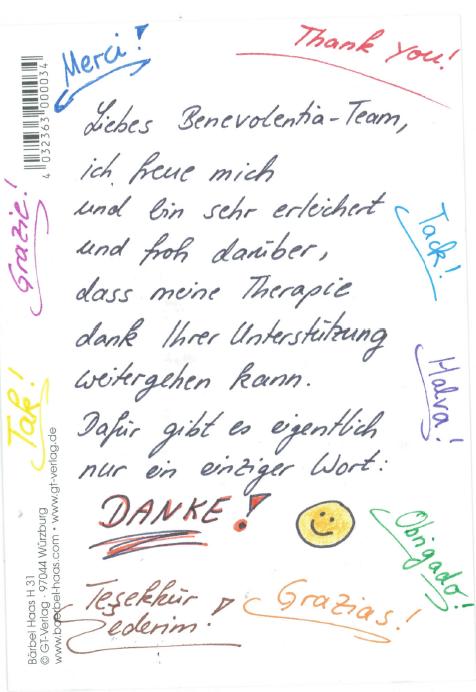 Merci!
Thank you!
4 032363 000034
Liebes Benevolentia-Team,
ich freue mich
und bin sehr erleichert
und froh darüber,
dass meine Therapie
dank Ihrer Unterstützung
weitergehen kann.
Dafür gibt es eigentlich
nur ein einziger Wort:
DANKE!
Grazie!
Tak!
Tack!
Halva!
Obrigado!
Teşekkür
ederim!
Grazias!
Bärbel Haas H 31
© GT-Verlag · 97044 Würzburg
www.baerbel-haas.com · www.gt-verlag.de